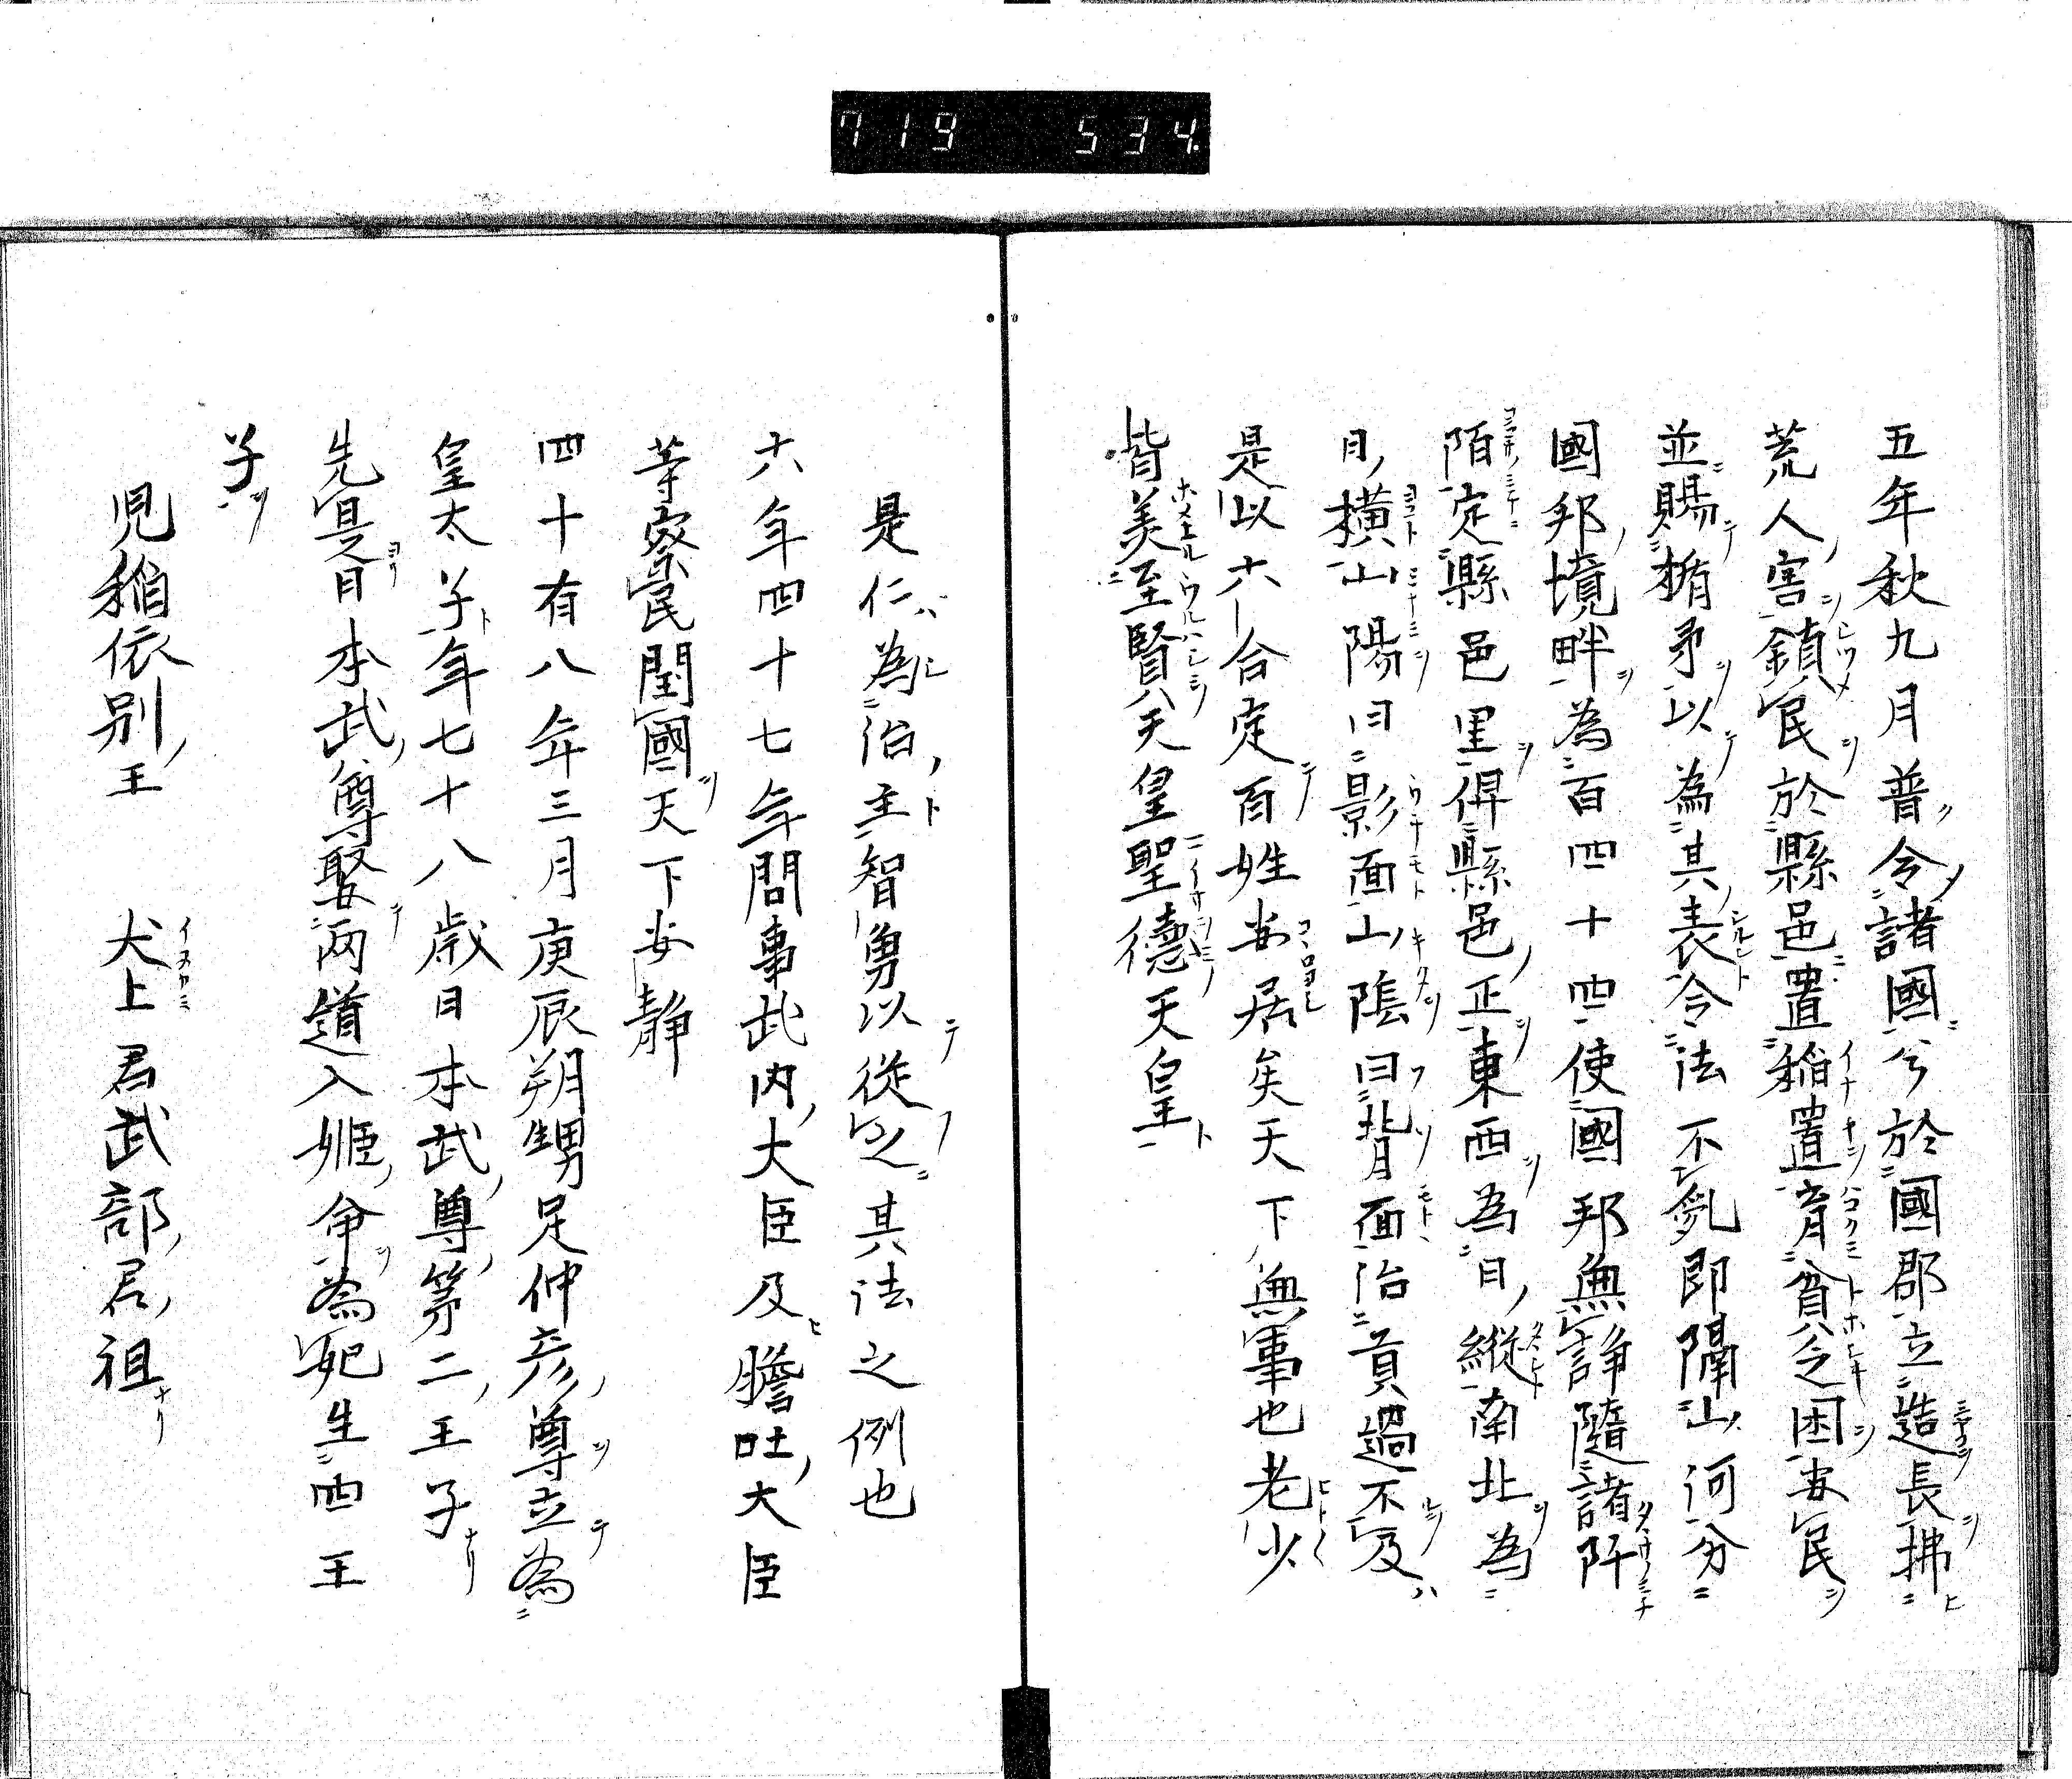 719 534.
五年秋九月普令諸國兮於國郡立造長拂
荒人害鎮民於縣邑置稲置育貧乏困安民
並賜楯矛以為其表令法不亂即隔山河分
國邦境畔為百四十四使國邦無諍隨諸阡
陌定縣邑里俾縣邑正東西為日縱南北為
日横山陽曰影面山陰曰背面治貢過不及
是以六合定百姓安居矣天下無事也老少
皆美至賢天皇聖德天皇
是仁為治主智勇以從之其法之例也
六年四十七年間事武内大臣及膽吐大臣
等察民閏國天下安靜
四十有八年三月庚辰朔甥足仲彦尊立為
皇太子年七十八歳日本武尊第二王子
先是日本武尊娶兩道入姬命為妃生四王
子
兒稲依別王 犬上君武部君祖